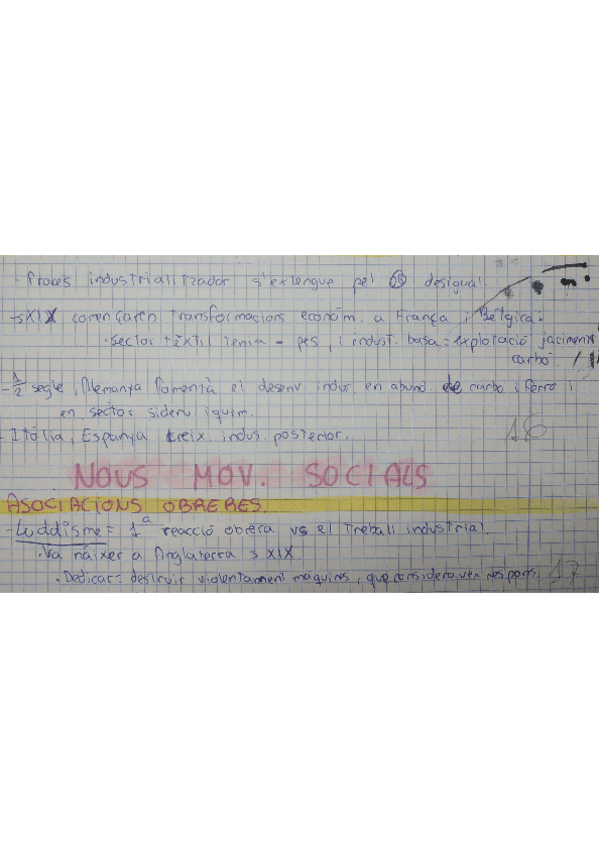 - Procés industrialitzador s'extengue pel desigual.
→ sXIX començaren transformacions econòm. a França i Bèlgica:
· Sector tèxtil tenia - pes i indust. basa = explotació jaciments
carbó.
- 1/2 segle, Alemanya fomentà el desenv. indus en abund. de carbó i ferro i
en sector sider. i quím.
- Itàlia, Espanya creix. indus. posterior.
16
NOUS MOV. SOCIALS
ASOCIACIONS OBRERES.
- Luddisme = 1ª reacció obrera vs el treball industrial.
· Va nàixer a Anglaterra s XIX
· Dedicar = destruir violentament màquines, que consideraven respons.
17